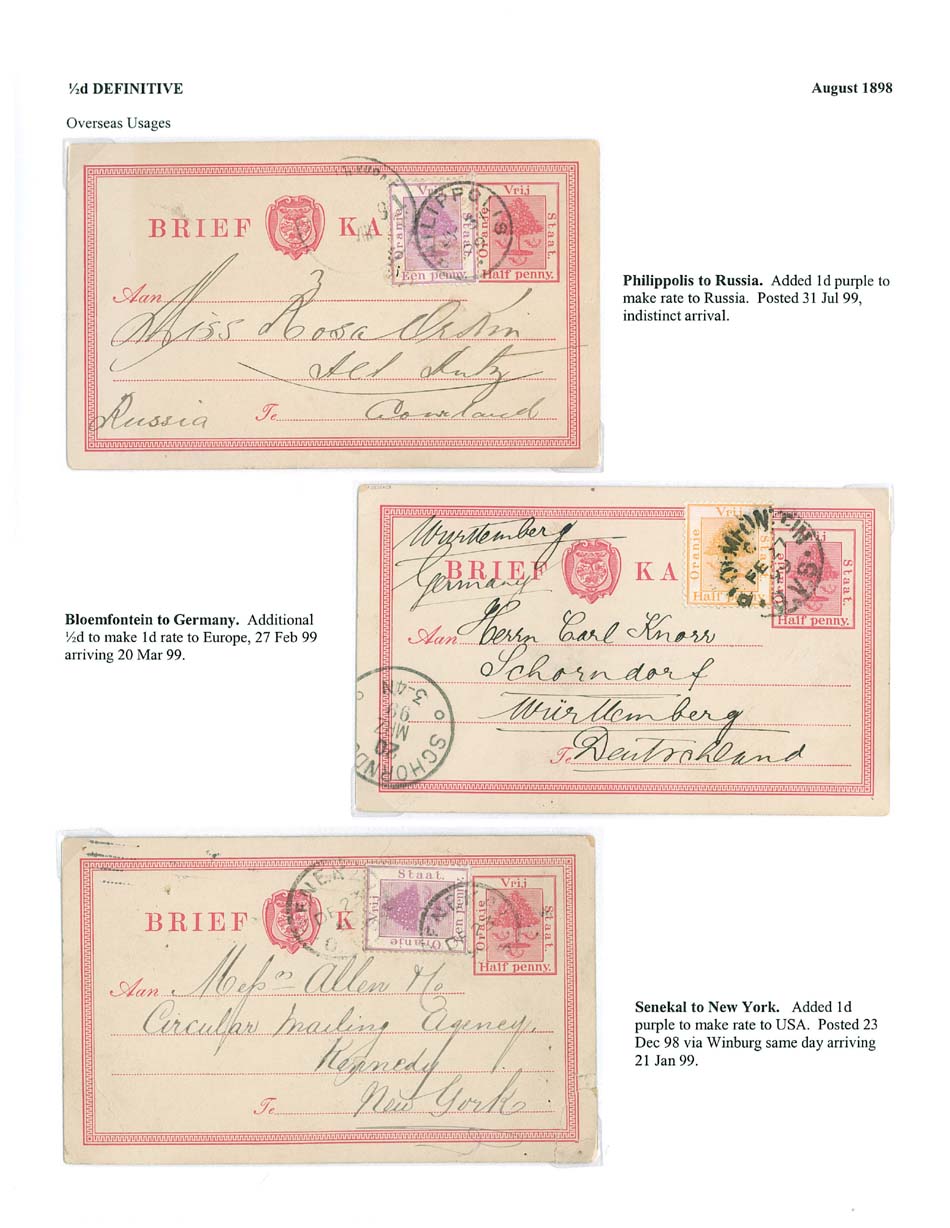 ½d DEFINITIVE
August 1898
Overseas Usages
BRIEF KA
Vrij
Oranje
Staat.
Een penny.
Vrij
Oranje
Staat.
Half penny.
PHILIPPOLIS
Aan
Miss Rosa Orkin
Russia
Te
Courland
Philippolis to Russia. Added 1d purple to
make rate to Russia. Posted 31 Jul 99,
indistinct arrival.
Wurttemberg
Germany
BRIEF KA
Vrij
Oranje
Staat
Half penny
Staat.
Half penny.
BLOEMFONTEIN
O.V.S.
FE 27
Aan
Herrn Carl Knorr
Schorndorf
Württemberg
Te
Deutschland
SCHORNDO
20
MRZ
99
3-4N
Bloemfontein to Germany. Additional
½d to make 1d rate to Europe, 27 Feb 99
arriving 20 Mar 99.
BRIEF K
Staat.
Vrij
Een penny
Oranje
Vrij
Oranje
Staat.
Half penny.
DE 23
Aan
Messrs Allen
Circular Mailing Agency,
Kennedy
Te
New York
Senekal to New York. Added 1d
purple to make rate to USA. Posted 23
Dec 98 via Winburg same day arriving
21 Jan 99.